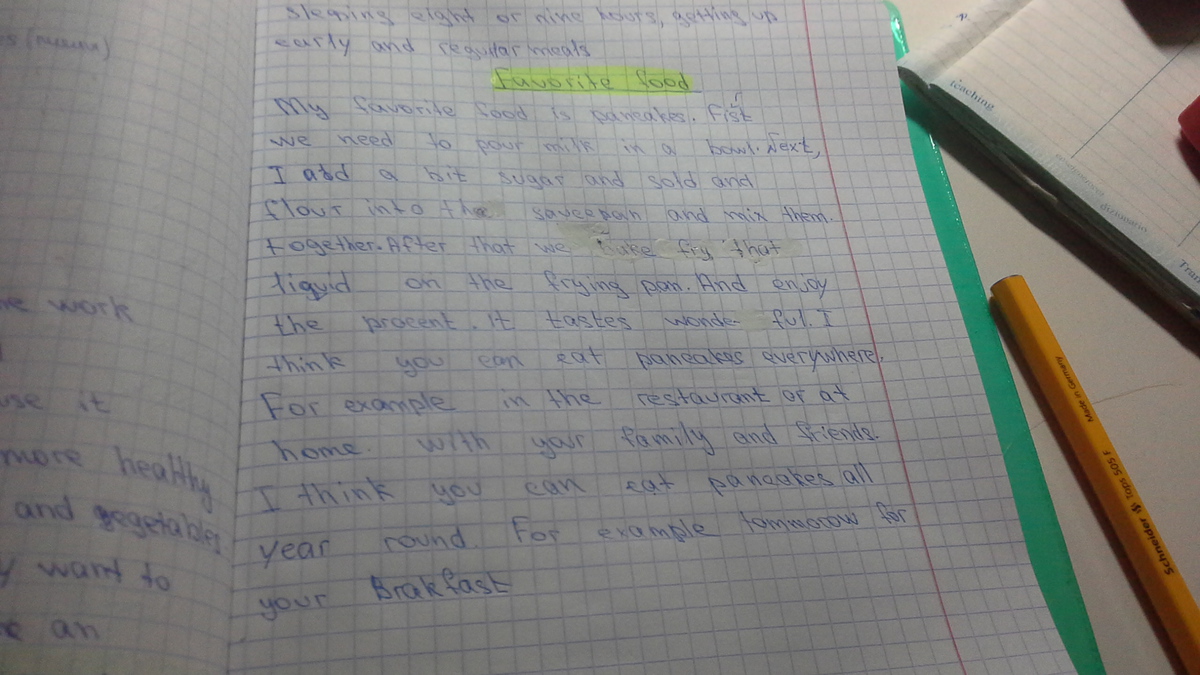 sleeping eight or nine hours, getting up
early and regular meals
Favorite food
My favorite food is pancakes. Fist
r
we need to pour milk in a bowl. Next,
I add a bit sugar and sold and
flour into the saucepan and mix them.
together. After that we fry that
liquid on the frying pan. And enjoy
the procent. It tastes wonde ful. I
think you can eat pancakes everywhere.
For example in the restaurant or at
home. with your family and friends.
I think you can eat pancakes all
year round. For example tommorow for
your Brakfast
he work
use it
more healthy
and vegetables
y want to
an
teaching
Made in Germany
Schneider Tops 505 F